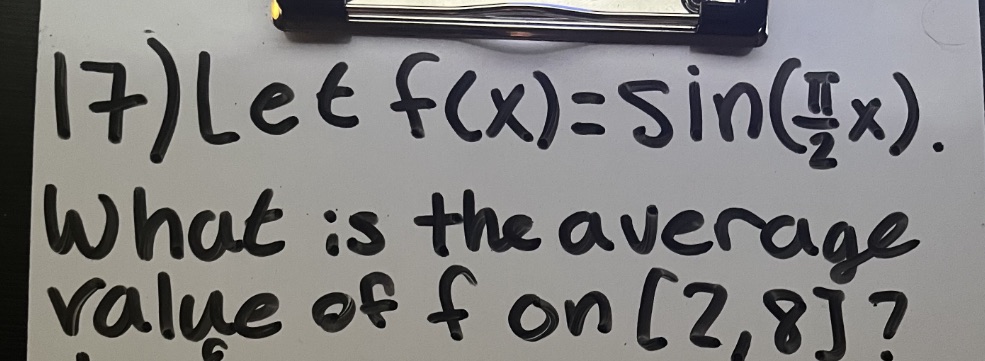 17) Let f(x)=sin(π/2 x).
What is the average
value of f on [2,8]?